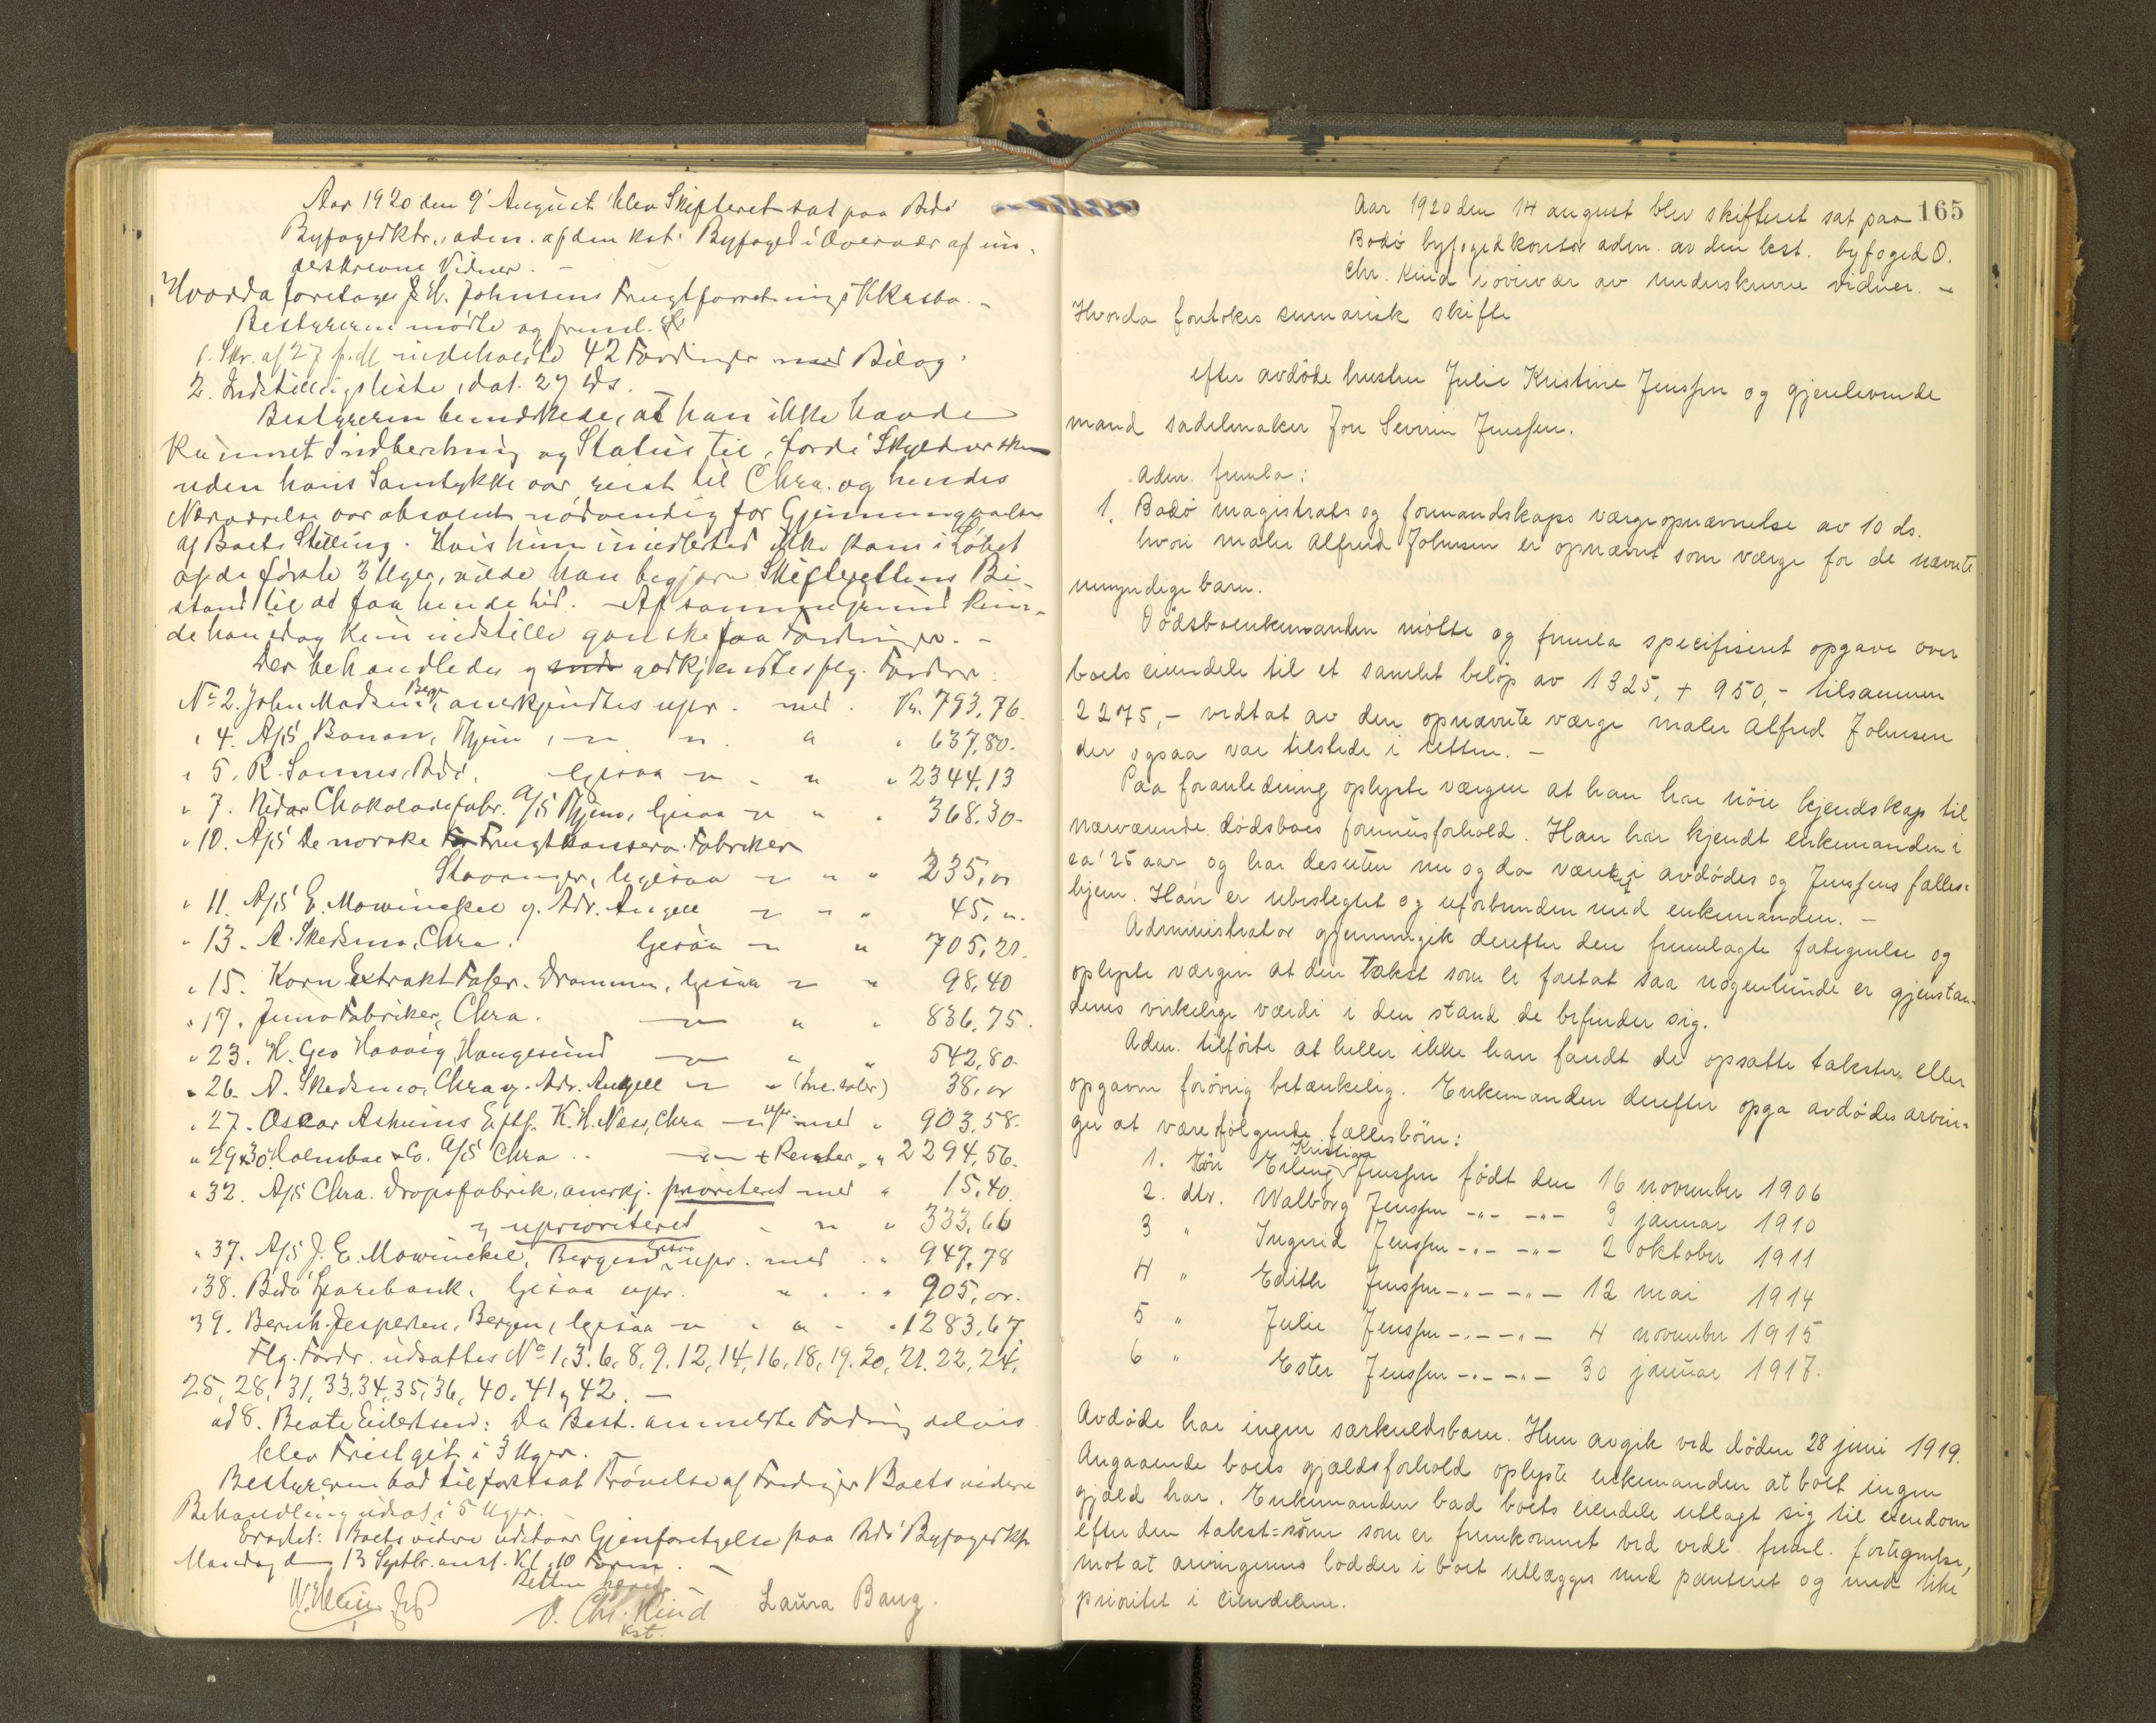 Aar 1920 den 9' August blev Skifteret sat paa Bodø
Byfogedktr., adm. af den kst. Byfoged i Overvær af un-
derskrevne Vidner. –
Hvorda foretoges J. H. Johnsens Frugtforretnings Kkrsbo. –
Bestyreren mødte og freml.
1. Skr. af 27 f. M indeholdte 42 Fordringer med Bilag.
2. Indstillingsliste, dat. 27 ds.
Bestyreren bemærkede, at han ikke havde
kunnet Indberetning og Status til, fordi Skyldnersken
uden hans Samtykke var reist til Chra. og hendes
Nærværelse var absolut nødvendig for Gjennemgaaelse
af Boets Stilling. Hvis hun imidlertid ikke kom i Løbet
af de første 3 Uger, vilde han begjære Skifterettens Bi-
stand til at faa hende hid. – Af samme Grund kun-
de han idag kun indstille ganske faa Fordringer. –
Der behandledes og godkjendtes flg. Fordr:
No 2. John Madsen, Berg, anerkjendtes upr. med Kr. 793,76.
" 4. A/S Banan, Thjem, – " – " " 637,80.
" 5. R. Sannes, Bodø, ligesaa – " – " " 2344,13
" 7. Nidar Chokoladefabr. A/S Thjem, ligesaa – " – " " 368.30-
" 10. A/S De norske Frugtkonserv. Fabriker
Stavanger, ligesaa – " – " " 235,00
" 11. A/S E. Mowinckel v. Adv. Angell – " – " " 45, "
" 13. A. Skedsmo, Chra. ligesaa – " – " 705,21.
" 15. Korn Extrakt Fabr. Drammen, ligesaa – " – " 98,40
" 17. Juno Fabriker, Chra. – " – " " 836,75.
" 23. H. Geo Haavig, Haugesund – " – " " 542,80.
" 26. A. Skedsmo, Chra v. Adv. Angell – " – " 38,00
" 27. Oscar Asheims Eftf. K. H. Næss, Chra – " – upr. med " 903,58.
" 29 & 30 Holmboe & Co. A/S Chra – " – + Renter " 2294,56.
" 32. A/S Chra. Dropsfabrik, anerkj. prioritert med " 15.40.
og uprioriteret – " " 333,66
" 37. A/S J. E. Mowinckel, Bergen, ligesaa upr. med " 947,78
" 38. Bodø Sparebank, ligesaa upr. " " 905,00.
39. Bernh. Jespersen, Bergen, ligesaa – " – " " 1283,67.
Flg. Fordr. udsattes No 1, 3. 6. 8, 9. 12, 14, 16, 18, 19. 20, 21. 22, 24,
25, 28, 31, 33, 34, 35, 36, 40, 41 og 42. –
ad 8. Beate Eilertsen: Da Best. anmeldte Fordring delvis
blev Frist git i 3 Uger. –
Bestyreren bad til fortsat Prøvelse af Fordringer Boets videre
Behandling udsat i 5 Uger. –
Eragtet: Boets videre udstaar Gjenforetagelse paa Bodø Byfogedktr
Mandag den 13 Septbr. anst. Kl. 10 Form. –
Retten hævet
O. Chr. Kind Laura Baug.
Kst.
165
Aar 1920 den 14 august blev skifteret sat paa
Bodø byfogedkontor adm. av den kst. byfoged O.
Chr. Kind i overvær av underskrevne vidner. –
Hvorda foretokes sumarisk skifte
efter avdöde hustru Julie Kristine Jenssen og gjenlevende
mand sadelmaker Jon Severin Jenssen.
Adm. fremla:
1. Bodø magistrats og formandskaps værgeopnævnelse av 10 ds.
hvori maler Alfred Johnsen er opnævnt som værge for de nævnte
umyndige barn.
Dödsboenkemanden mötte og fremla specifiseret opgave over
boets eiendele til et samlet belöp av 1325, + 950,- tilsammen
2275,- vedtat av den opnævnte værge maler Alfred Johnsen
der ogsaa var tilstede i retten. –
Paa foranledning oplyste værgen at han har nöie kjendskap til
nærværende dödsboes formuesforhold. Han har kjendt enkemanden i
ca' 25 aar og har desuten nu og da været i avdödes og Jenssens fælles-
hjem. Han er ubeslegtet og uforbunden med enkemanden. –
Administrator gjennemgik derefter den fremlagte fortegnelse og
oplyste værgen at den takst som er foretat saa nogenlunde er gjenstan-
denes virkelige værdi i den stand de befinder sig.
Adm. tilförte at heller ikke han fandt de opsatte takster eller
opgaven forövrig betænkelig. Enkemanden derefter opga avdödes arvin-
ger at være fölgende fællesbörn:
1. Sön Erling Kristian Jenssen född den 16 november 1906
2. dtr. Walborg Jenssen -"- -"- 3 januar 1910
3 " Ingerid Jenssen -"- -"- 2 oktober 1911
4 " Edith Jenssen -"- -"- 12 mai 1914
5 " Julie Jenssen -"- -"- 4 november 1915
6 " Ester Jenssen -"- -"- 30 januar 1917.
Avdöde har ingen særkuldsbarn. Hun avgik ved döden 28 juni 1919.
Angaaende boets gjældsforhold oplyste enkemanden at boet ingen
gjæld har. Enkemanden bad boets eiendele utlagt sig til eiendom
efter den takst=sum som er fremkommet ved vedl. freml. fortegnelse,
mot at arvingernes lodder i boet utlægges med panteret og med like
prioritet i eiendelene.